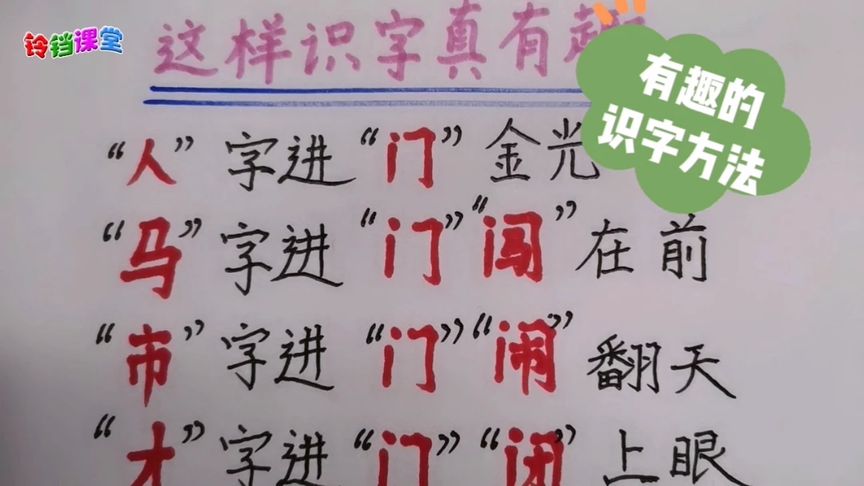 铃铛课堂
这样识字真有趣
有趣的
识字方法
“人”字进“门”金光
“马”字进“门”“闯”在前
“市”字进“门”“闹”翻天
“才”字进“门”“闭”上眼